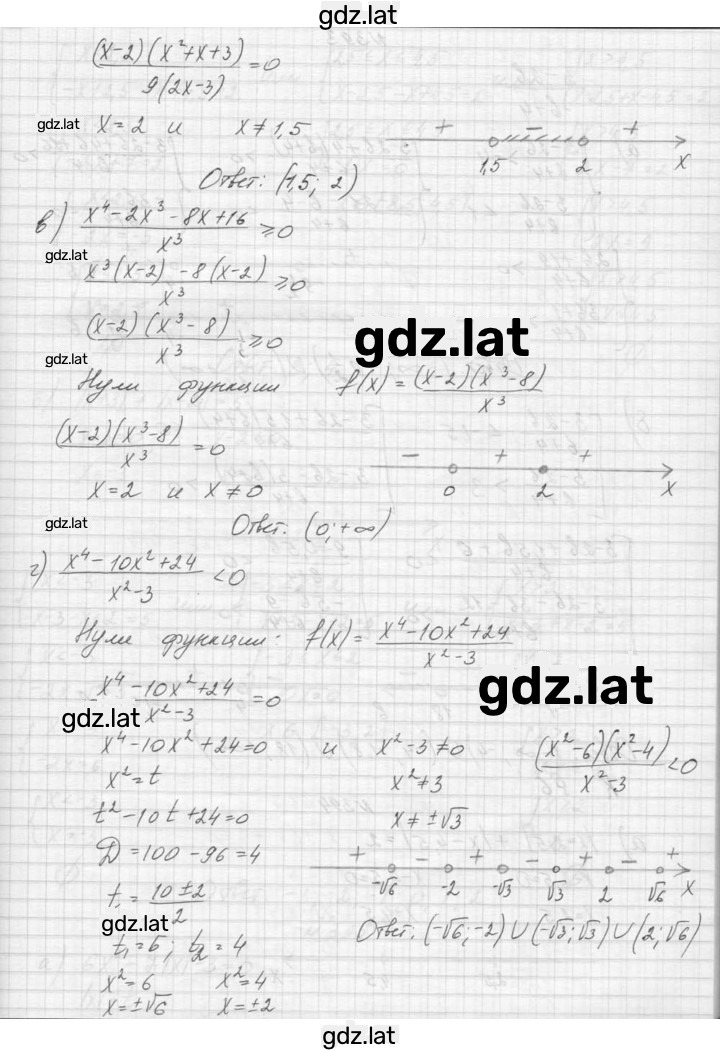 gdz.lat
(x-2)(x²+x+3)/9(2x-3) =0
gdz.lat x=2 и x≠1,5
+ - +
1,5 2 x
Ответ: (1,5; 2)
в) x⁴-2x³-8x+16/x³ ≥0
gdz.lat
x³(x-2)-8(x-2)/x³ ≥0
(x-2)(x³-8)/x³ ≥0
gdz.lat
gdz.lat
Нули функции f(x)=(x-2)(x³-8)/x³
(x-2)(x³-8)/x³ =0
- + +
0 2 x
x=2 и x≠0
gdz.lat
Ответ: (0;+∞)
г) x⁴-10x²+24/x²-3 <0
Нули функции: f(x)= x⁴-10x²+24/x²-3
x⁴-10x²+24/x²-3 =0
gdz.lat
gdz.lat
x⁴-10x²+24=0 и x²-3≠0 (x²-6)(x²-4)/x²-3 <0
x²=t x²≠3
t²-10t+24=0 x≠±√3
D=100-96=4
+ - + - + - +
-√6 -2 -√3 √3 2 √6 x
t,=10±2/2
gdz.lat
Ответ: (-√6;-2)∪(-√3;√3)∪(2;√6)
t₁=6; t₂=4
x²=6 x²=4
x=±√6 x=±2
gdz.lat